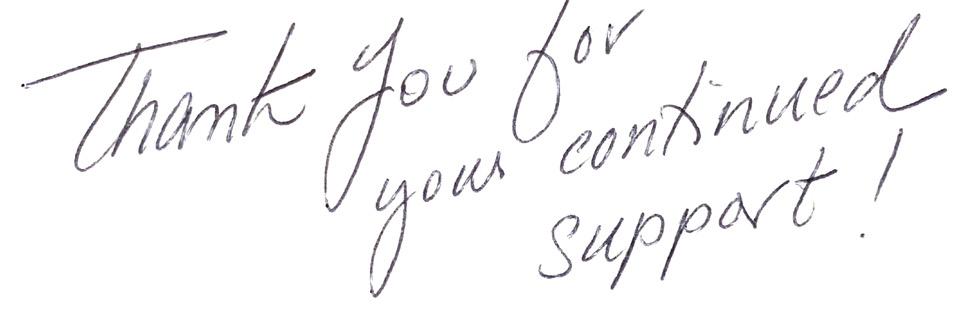 Thank you for
your continued
support!